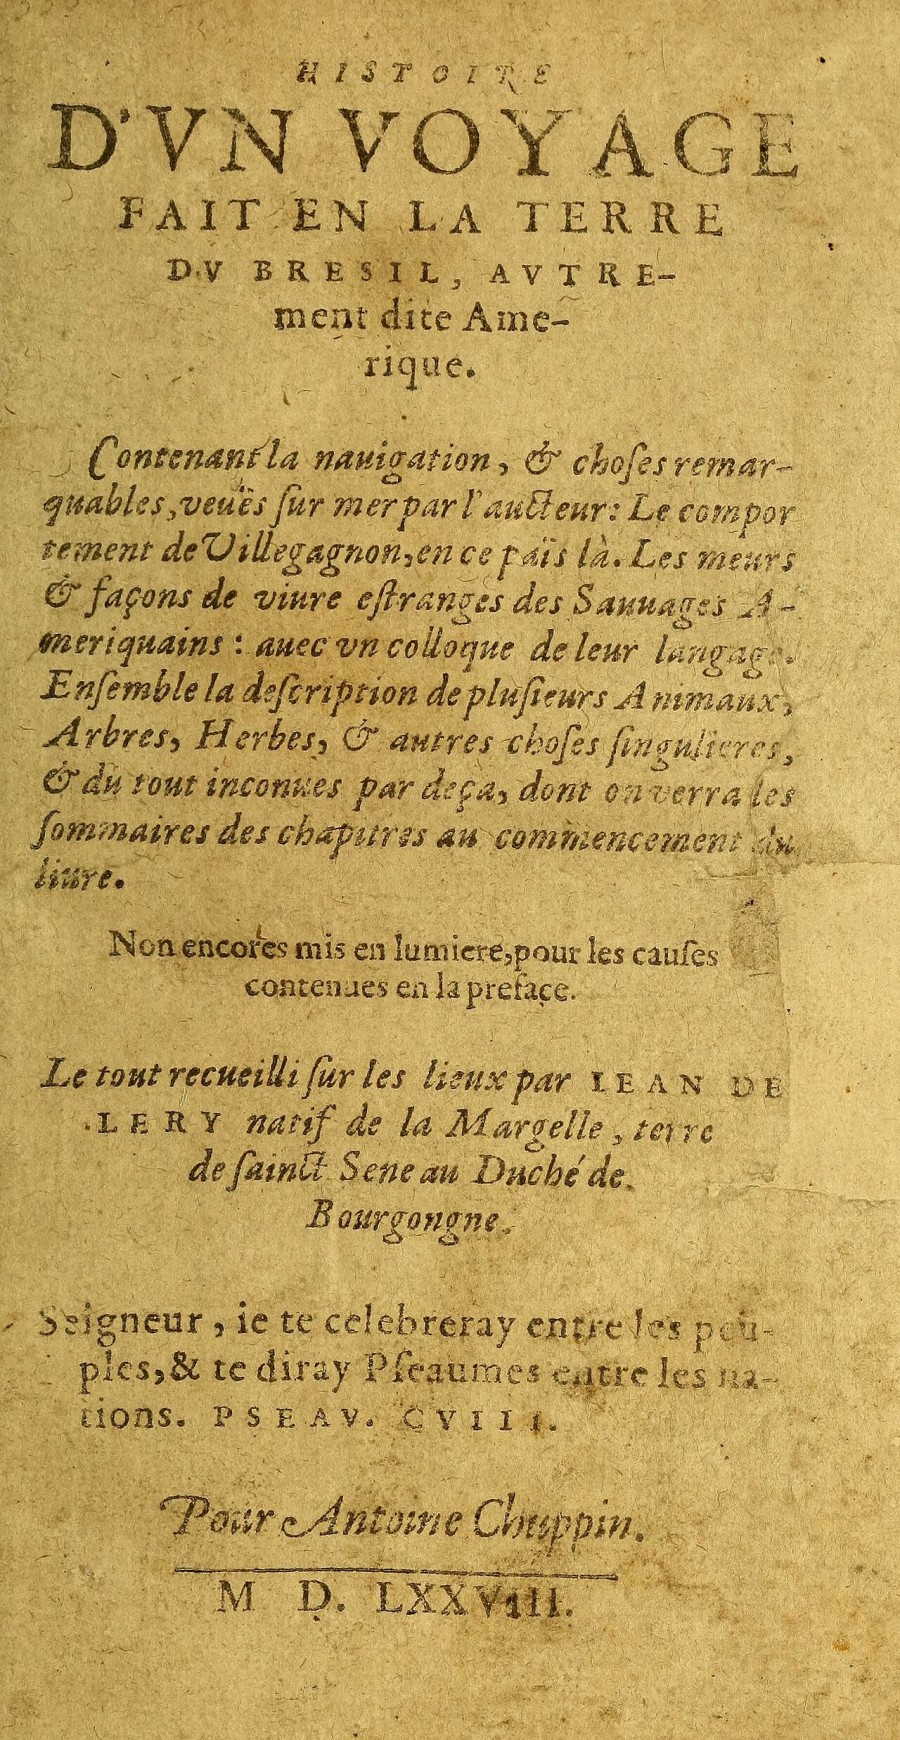 HISTOIRE
D'VN VOYAGE
FAIT EN LA TERRE
DV BRESIL, AVTRE-
ment dite Ame-
rique.
Contenant la nauigation, & choſes remar-
quables, veuës ſur mer par l'aucteur: Le compor
tement de Villegagnon, en ce païs là. Les meurs
& façons de viure eſtranges des Sauuages A-
meriquains: auec vn colloque de leur langage.
Enſemble la deſcription de pluſieurs Animaux,
Arbres, Herbes, & autres choſes ſingulieres,
& du tout inconues par deça, dont on verra les
ſommaires des chapitres au commencement du
liure.
Non encores mis en lumiere, pour les cauſes
contenues en la preface.
Le tout recueilli ſur les lieux par IEAN DE
LERY natif de la Margelle, terre
de ſainct Sene au Duché de
Bourgongne.
Seigneur, ie te celebreray entre les peu-
ples, & te diray Pſeaumes entre les na-
tions. PSEAV. CVIII.
Pour Antoine Chuppin.
M D. LXXVIII.